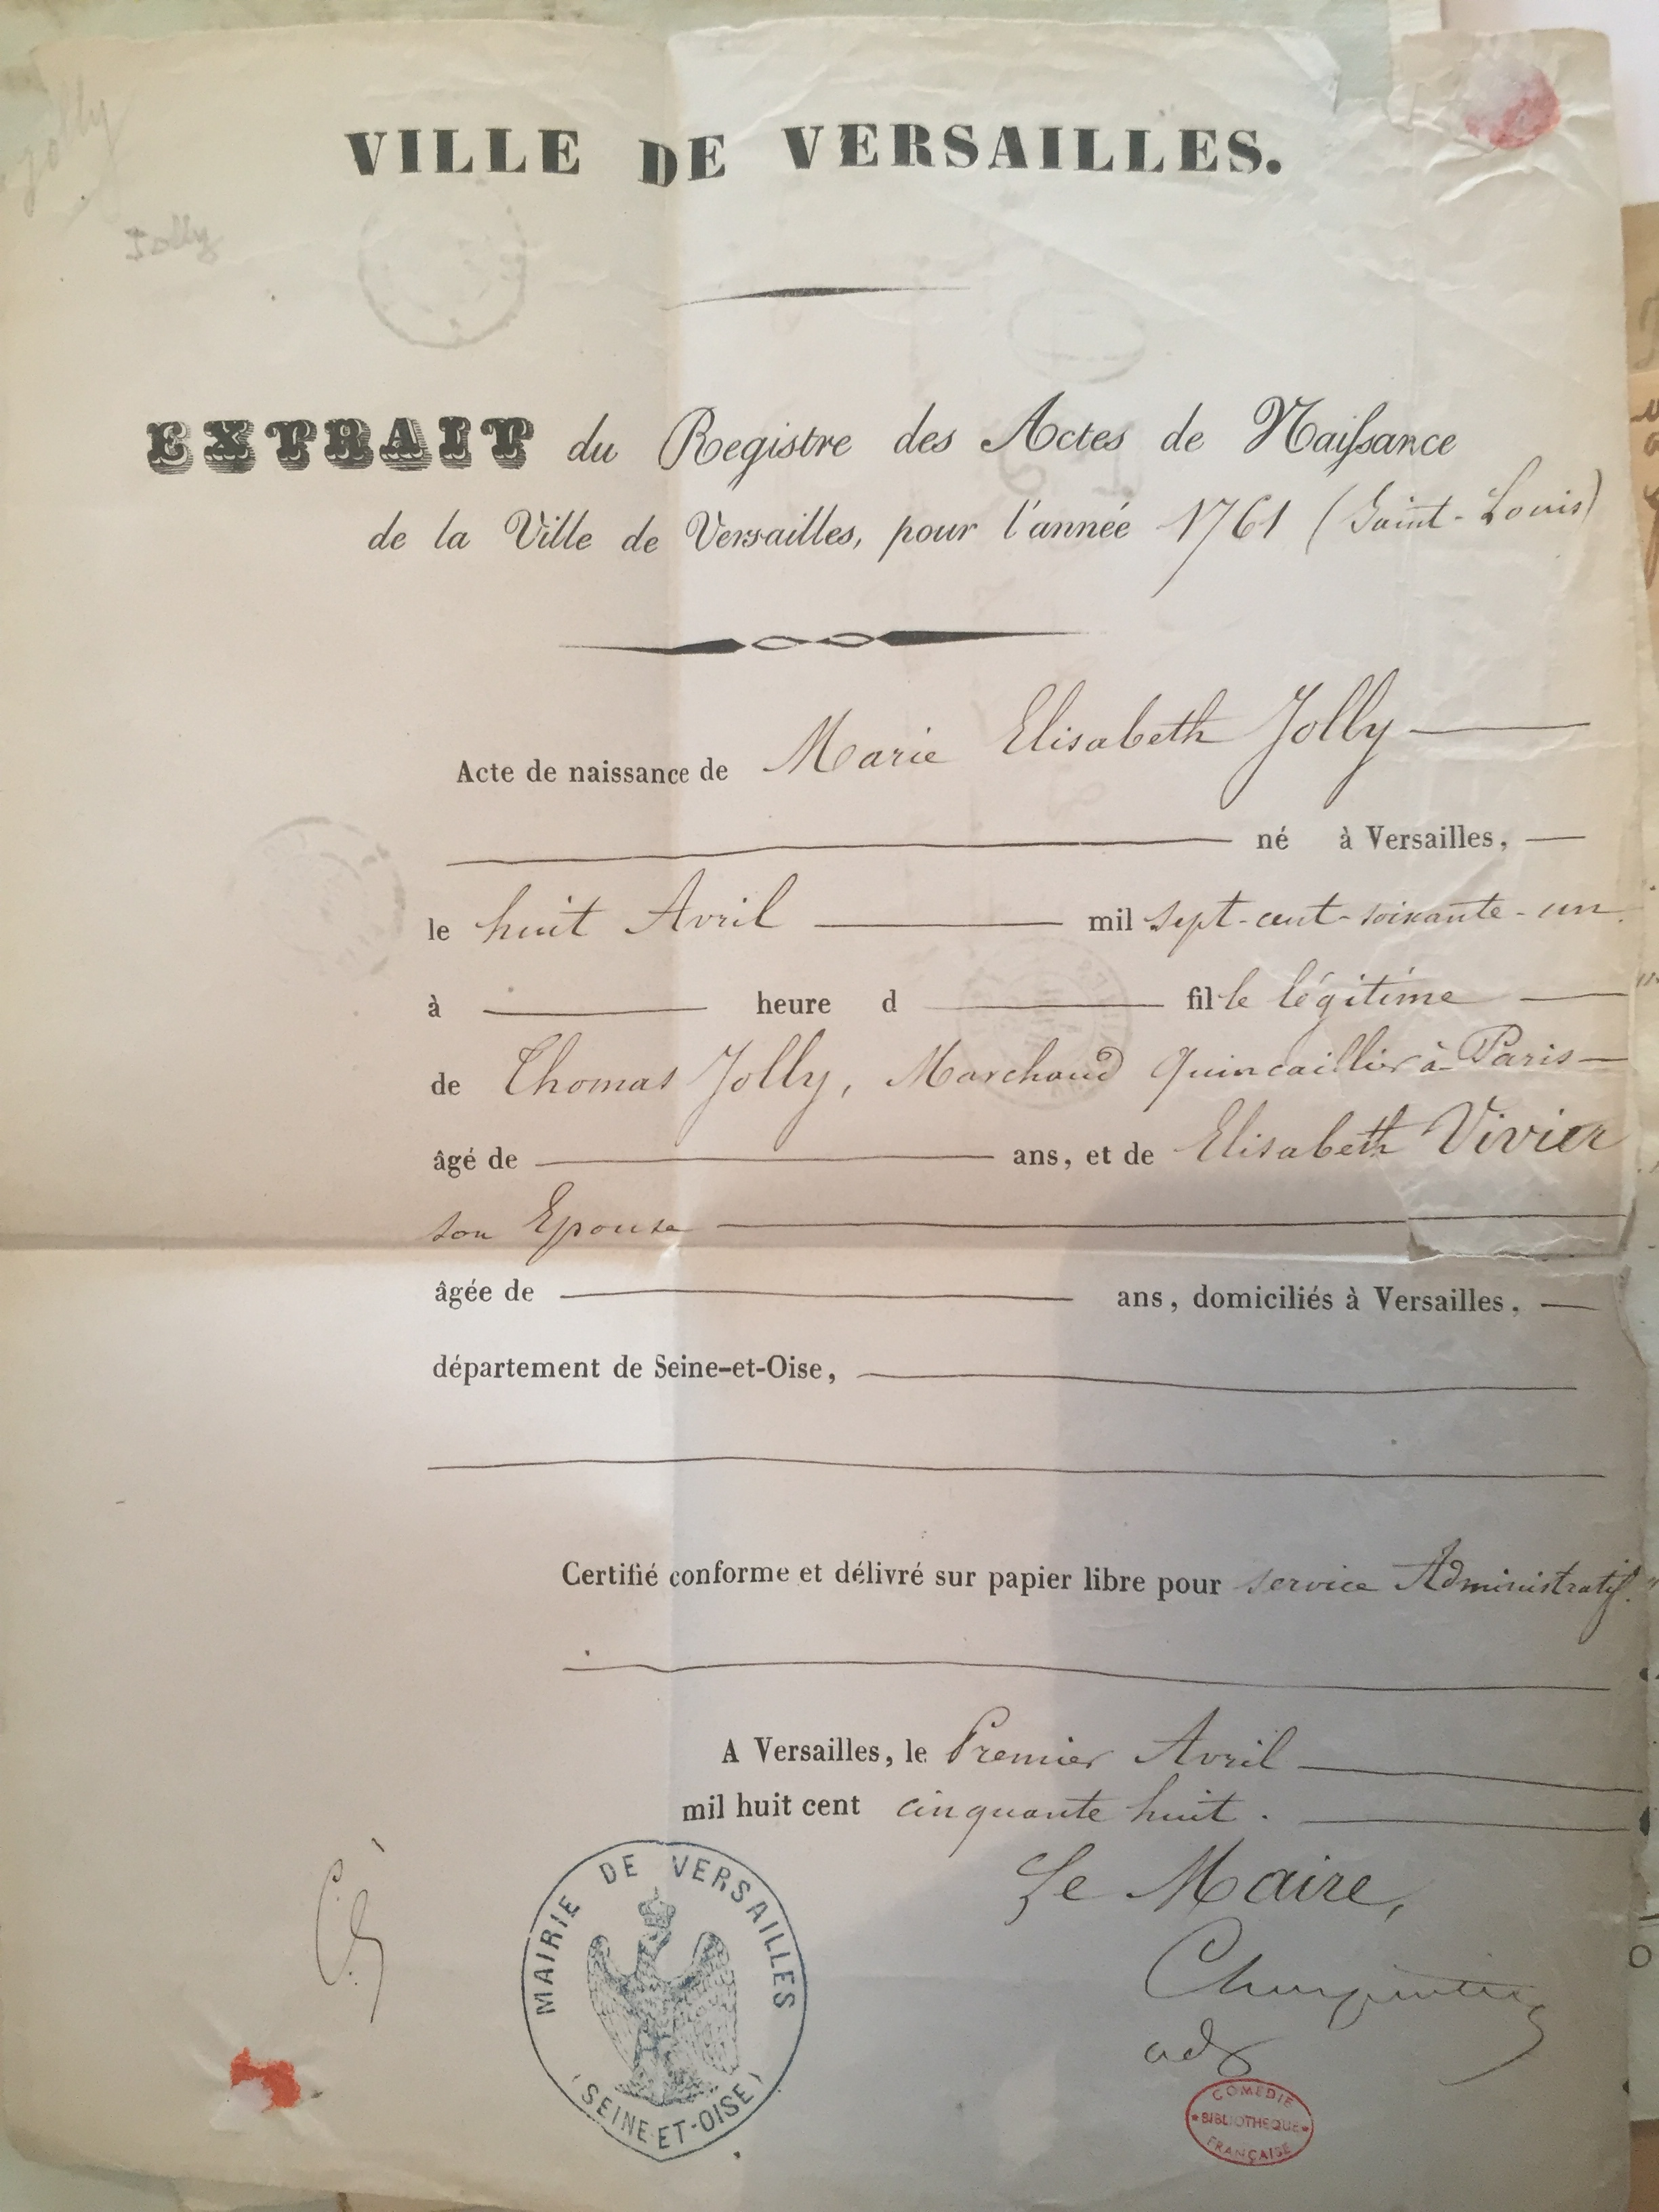 VILLE DE VERSAILLES.
Jolly
Jolly
EXTRAIT du Registre des Actes de Naissance
de la Ville de Versailles, pour l'année 1761 (Saint-Louis)
Acte de naissance de Marie Elisabeth Jolly
né à Versailles,
le huit Avril mil sept-cent-soixante-un.
à heure d fille légitime
de Thomas Jolly, Marchand Quincaillier à Paris
âgé de ans, et de Elisabeth Vivier
son Epouse
âgée de ans, domiciliés à Versailles,
département de Seine-et-Oise,
Certifié conforme et délivré sur papier libre pour service Administratif.
A Versailles, le Premier Avril
mil huit cent cinquante huit.
Le Maire,
Charpentier
adj
MAIRIE DE VERSAILLES
(SEINE-ET-OISE)
COMÉDIE
*BIBLIOTHEQUE*
FRANÇAISE